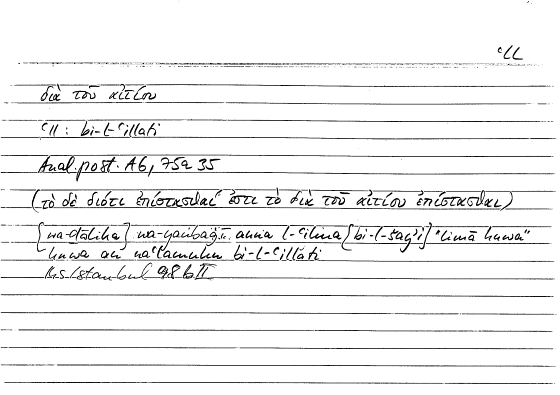 ʿll
διὰ τοῦ αἰτίου
ʿll : bi-l-ʿillati
Anal. post. A6, 75a 35
(τὸ δὲ διότι ἐπίστασθαί ἐστι τὸ διὰ τοῦ αἰτίου ἐπίστασθαι)
anna l-ʿilma [bi-l-šayʾi] "limā huwa"
huwa an bi-l-ʿillati
Hs. Istanbul